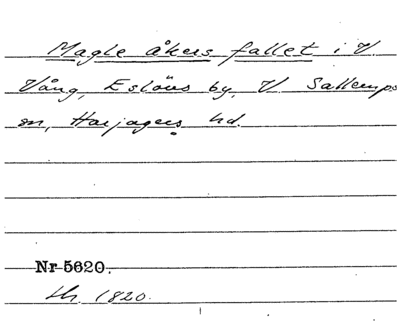 Magle åkers fallet i V.
Vång, Eslövs by, V. Sallerups
sn, Harjagers hd.
Nr 5620.
LH. 1820.